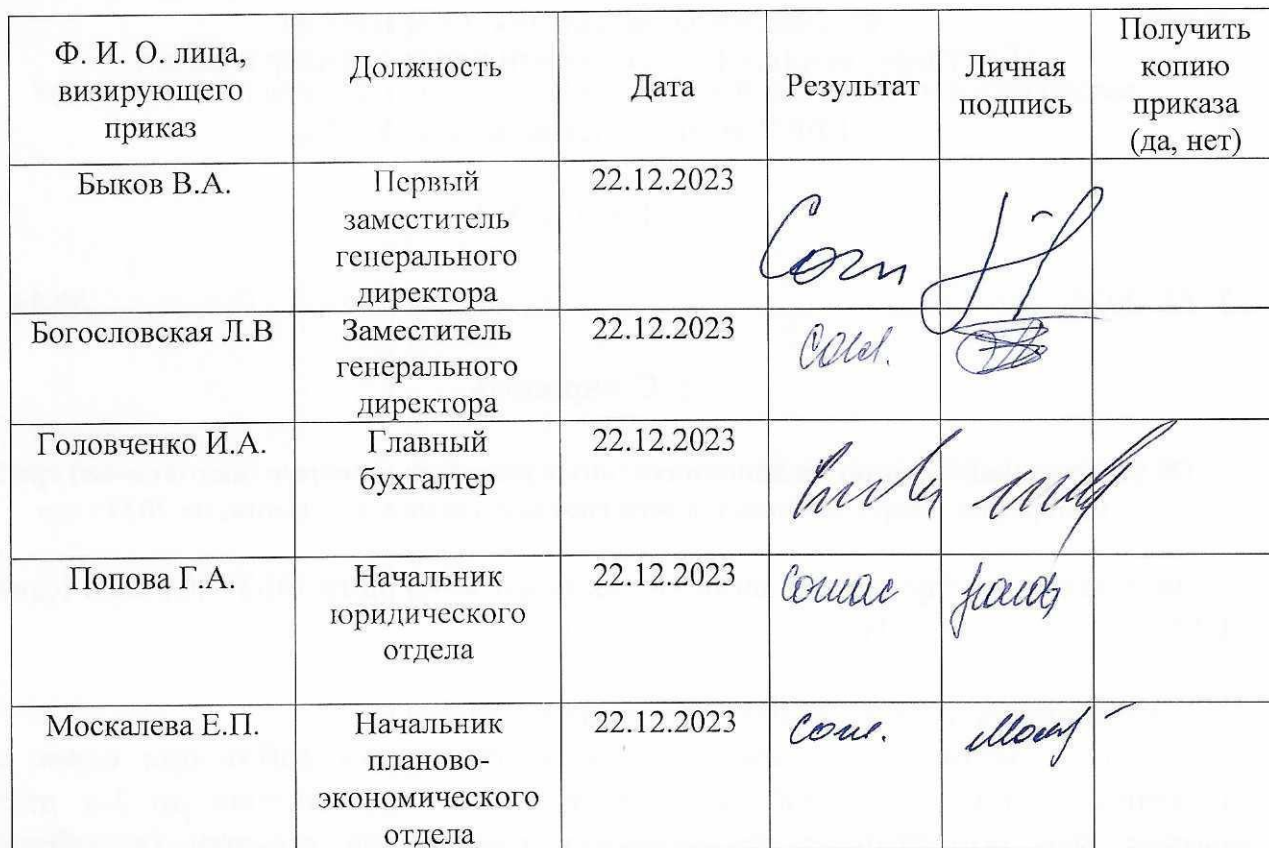 Ф. И. О. лица,
визирующего
приказ
Должность
Дата
Результат
Личная
подпись
Получить
копию
приказа
(да, нет)
Быков В.А.
Первый
заместитель
генерального
директора
22.12.2023
Согл
Богословская Л.В
Заместитель
генерального
директора
22.12.2023
Согл.
Головченко И.А.
Главный
бухгалтер
22.12.2023
Попова Г.А.
Начальник
юридического
отдела
22.12.2023
Соглас
Москалева Е.П.
Начальник
планово-
экономического
отдела
22.12.2023
Согл.